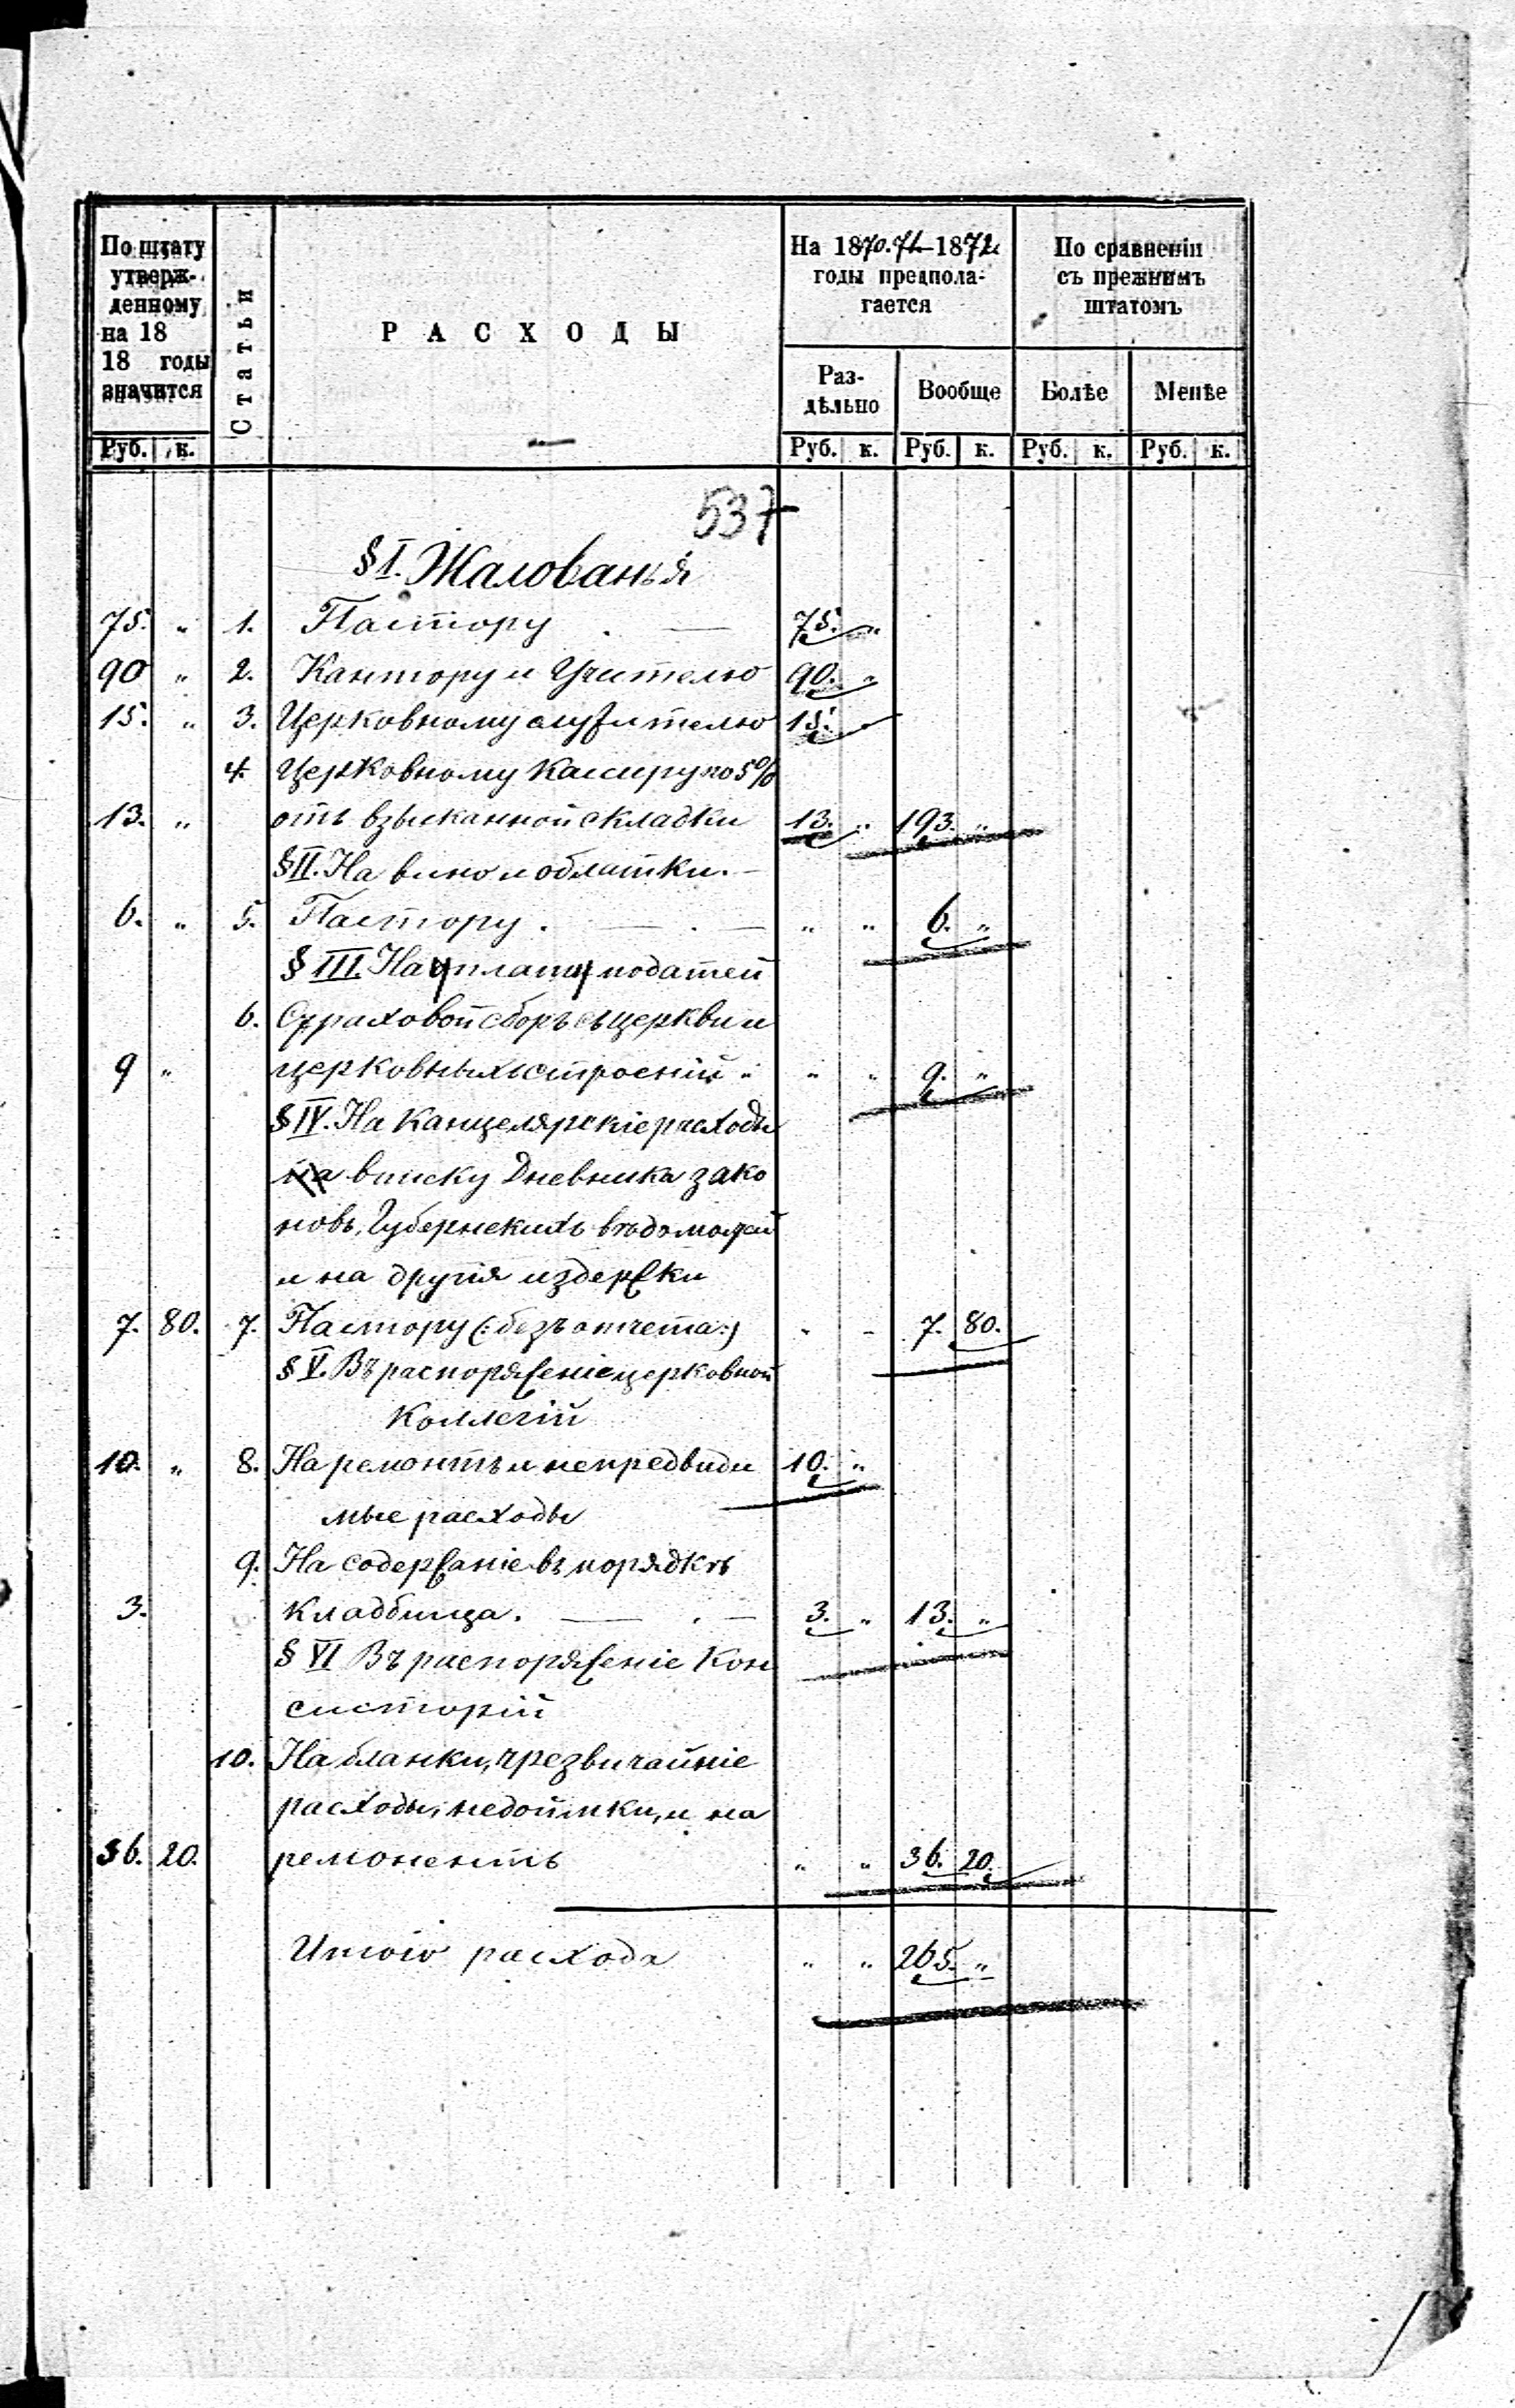 По штату утверж- денному на 18 18 годы значится
Статьи
РАСХОДЫ
На 1870.71–1872 годы предпола- гается
По сравненіи съ прежнимъ штатомъ
Раз- дѣльно
Вообще
Болѣе
Менѣе
Руб. к.
Руб. к. Руб. к. Руб. к. Руб. к.
537
§ I. Жалованья
75. " 1. Пастору . — 75. "
90 " 2. Кантору и Учителю 90. "
15. " 3. Церковному служителю 15.
4. Церковному Кассиру по 5%
13. " отъ взысканной складки 13. " 193. "
§ II. На вино и облатки. –
6. " 5. Пастору . — . — " " 6. "
§ III. На уплату податей
6. Страховой сборъ съ церкви и
9 " церковныхъ строеній " " " 9. "
§ IV. На Канцелярскіе расходы
на вписку Дневника зако
новъ, Губернскихъ вѣдомостей
и на другія издержки
7. 80. 7. Пастору (: безъ отчета :) " " 7. 80.
§ V. Въ распоряженіе церковной
Коллегій
10. " 8. На ремонтъ и непредвиди 10. "
мые расходы
9. На содержаніе въ порядкѣ
3. Кладбища. — . — 3. " 13. "
§ VI Въ распоряженіе Кон
систорій
10. На бланки, чрезвичайніе
расходы, недоимки, и на
36. 20. ремонентъ " " 36. 20.
Итого расхода " " 265. "